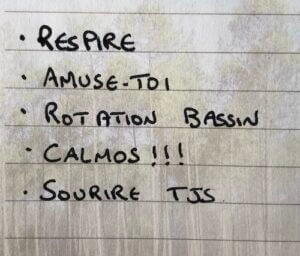 • RESPIRE
• AMUSE-TOI
• ROTATION BASSIN
• CALMOS !!!
• SOURIRE TJS